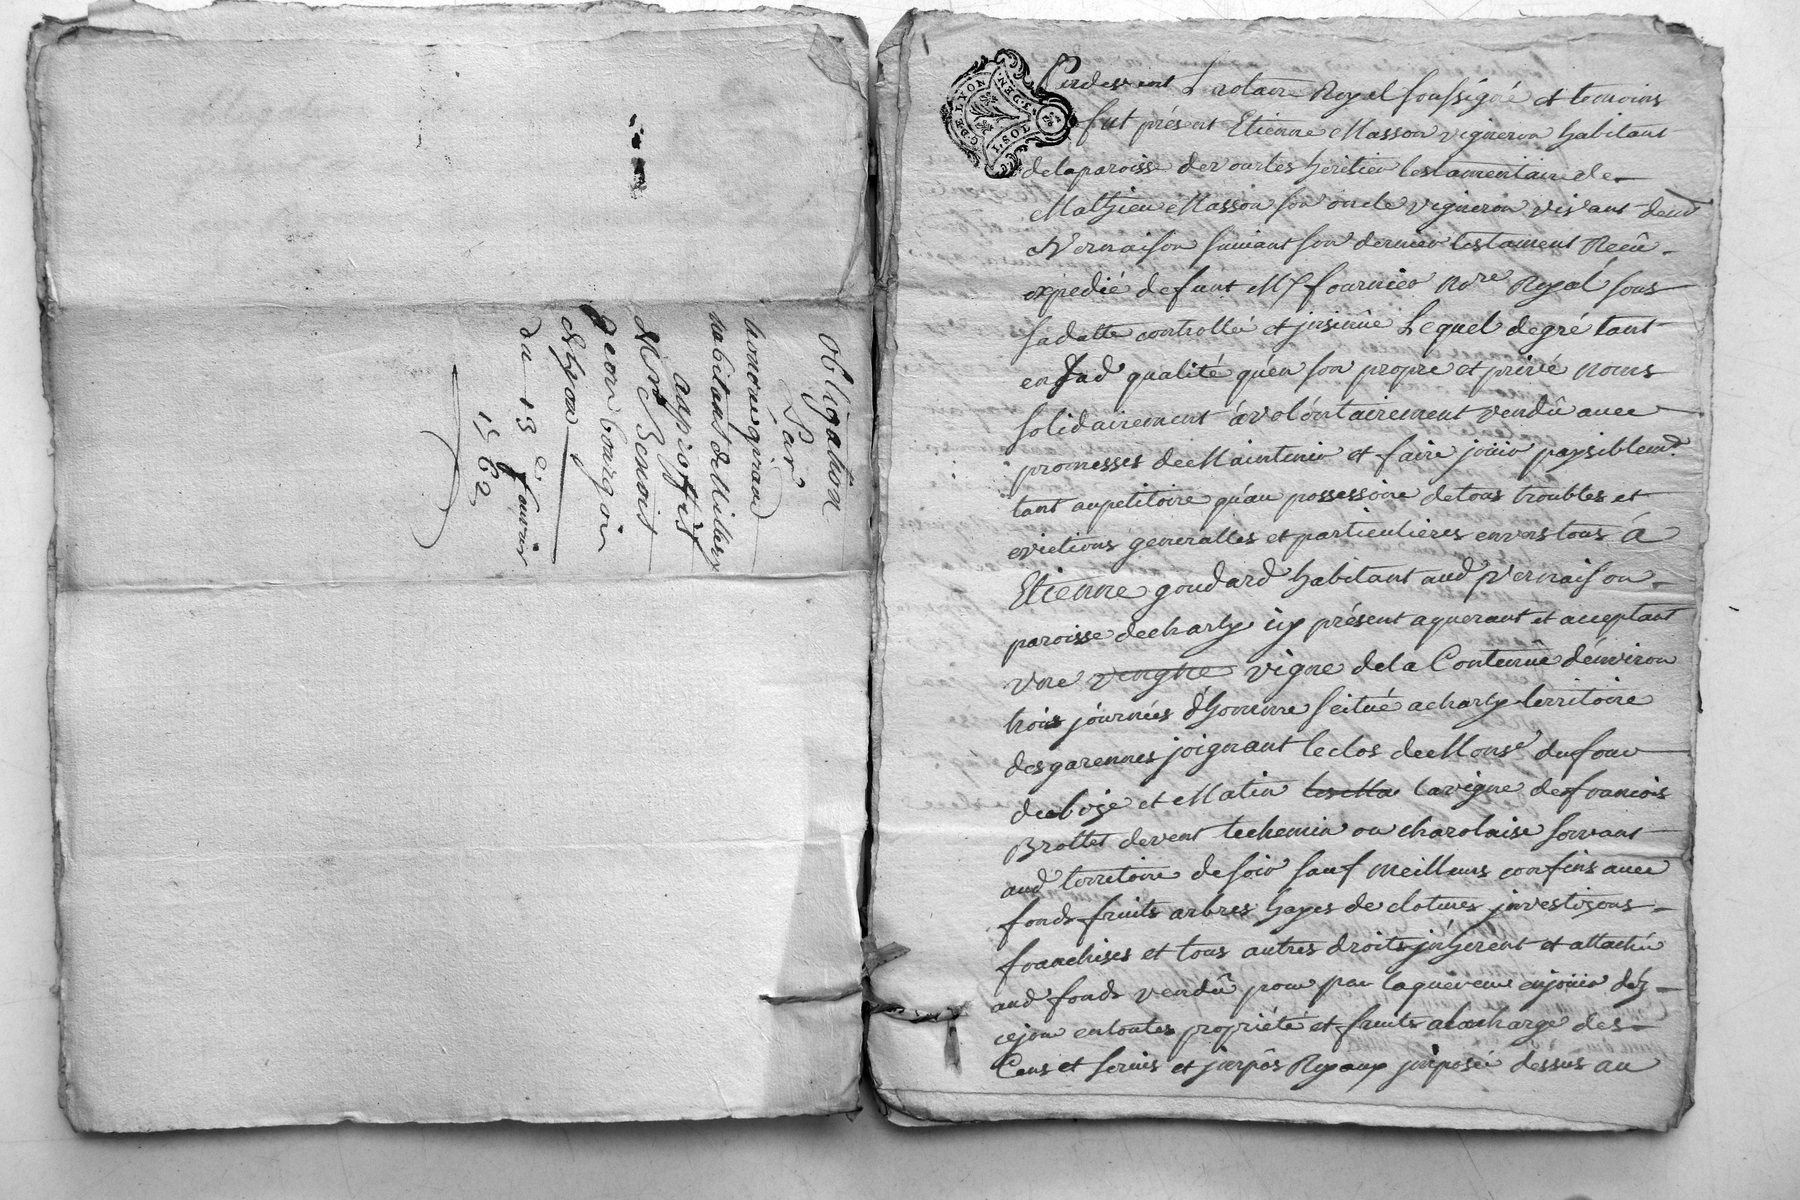 Obligation
Par
honoré giraud
habitant de Millery
au profit
de Mre Benoit
bourgoin
a Lyon
du 13e fevrier
1762
G. DE LYON
1. SOL 4. DEN.
Pardevant Le notaire Royal soussigné et temoins
fut présent Etienne Masson vigneron habitant
de la paroisse de vourles heritier testamentaire de
Mathieu Masson son oncle vigneron vivant dud
Vernaison suivant son dernier testament Recû
expedié defunt Me fournier Nore Royal sous
sa datte controllé et jnsinûe Lequel de gré tant
en sad qualité qu'en son propre et privé noms
solidairement a volontairement vendû avec
promesses de Maintenir et faire joüir paysiblemt
tant au petitoire qu'au possessoire de tous troubles et
evictions generalles et particulieres envers tous á
Etienne goudard habitant aud Vernaison
paroisse de charly icy présent aquerant et acceptant
une vinghe vigne de la Contenûe d'environ
trois journées d'homme scitué a charly territoire
des garennes joignant le clos de Monsr dufour
de bize et Matin les Ma la vigne de francois
Brottet de vent le chemin ou charolaise servant
aud territoire de soir sauf meilleurs confins avec
fonds fruits arbres hayes de clotures jnvestizons
franchises et tous autres droits jnherent et attaché
aud fonds vendû pour par laquereur en joüir déz
ce jour en toutes propriété et fruits a la charge des
Cens et servis et jmpôs Royaux jmposé dessus au